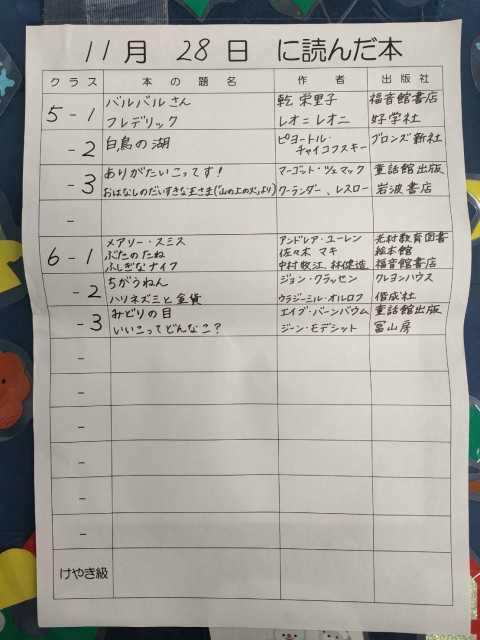 11月 28日 に読んだ本
クラス 本の題名 作者 出版社
5-1 バルバルさん 乾 栄里子 福音館書店
フレデリック レオ=レオニ 好学社
-2 白鳥の湖 ピョートル・チャイコフスキー ブロンズ新社
-3 ありがたいこってす! マーゴット・ツェマック 童話館出版
おはなしのだいすきな王さま(「山の上の火」より) クーランダー、レスロー 岩波書店
-
6-1 メアリー・スミス アンドレア・ユーレン 光村教育図書
ぶたのたね 佐々木 マキ 絵本館
ふしぎなナイフ 中村牧江、林健造 福音館書店
-2 ちがうねん ジョン・クラッセン クレヨンハウス
ハリネズミと金貨 ウラジーミル・オルロフ 偕成社
-3 みどりの目 エイブ・バーンバウム 童話館出版
いいこってどんなこ? ジーン・モデシット 冨山房
-
-
-
-
-
けやき級